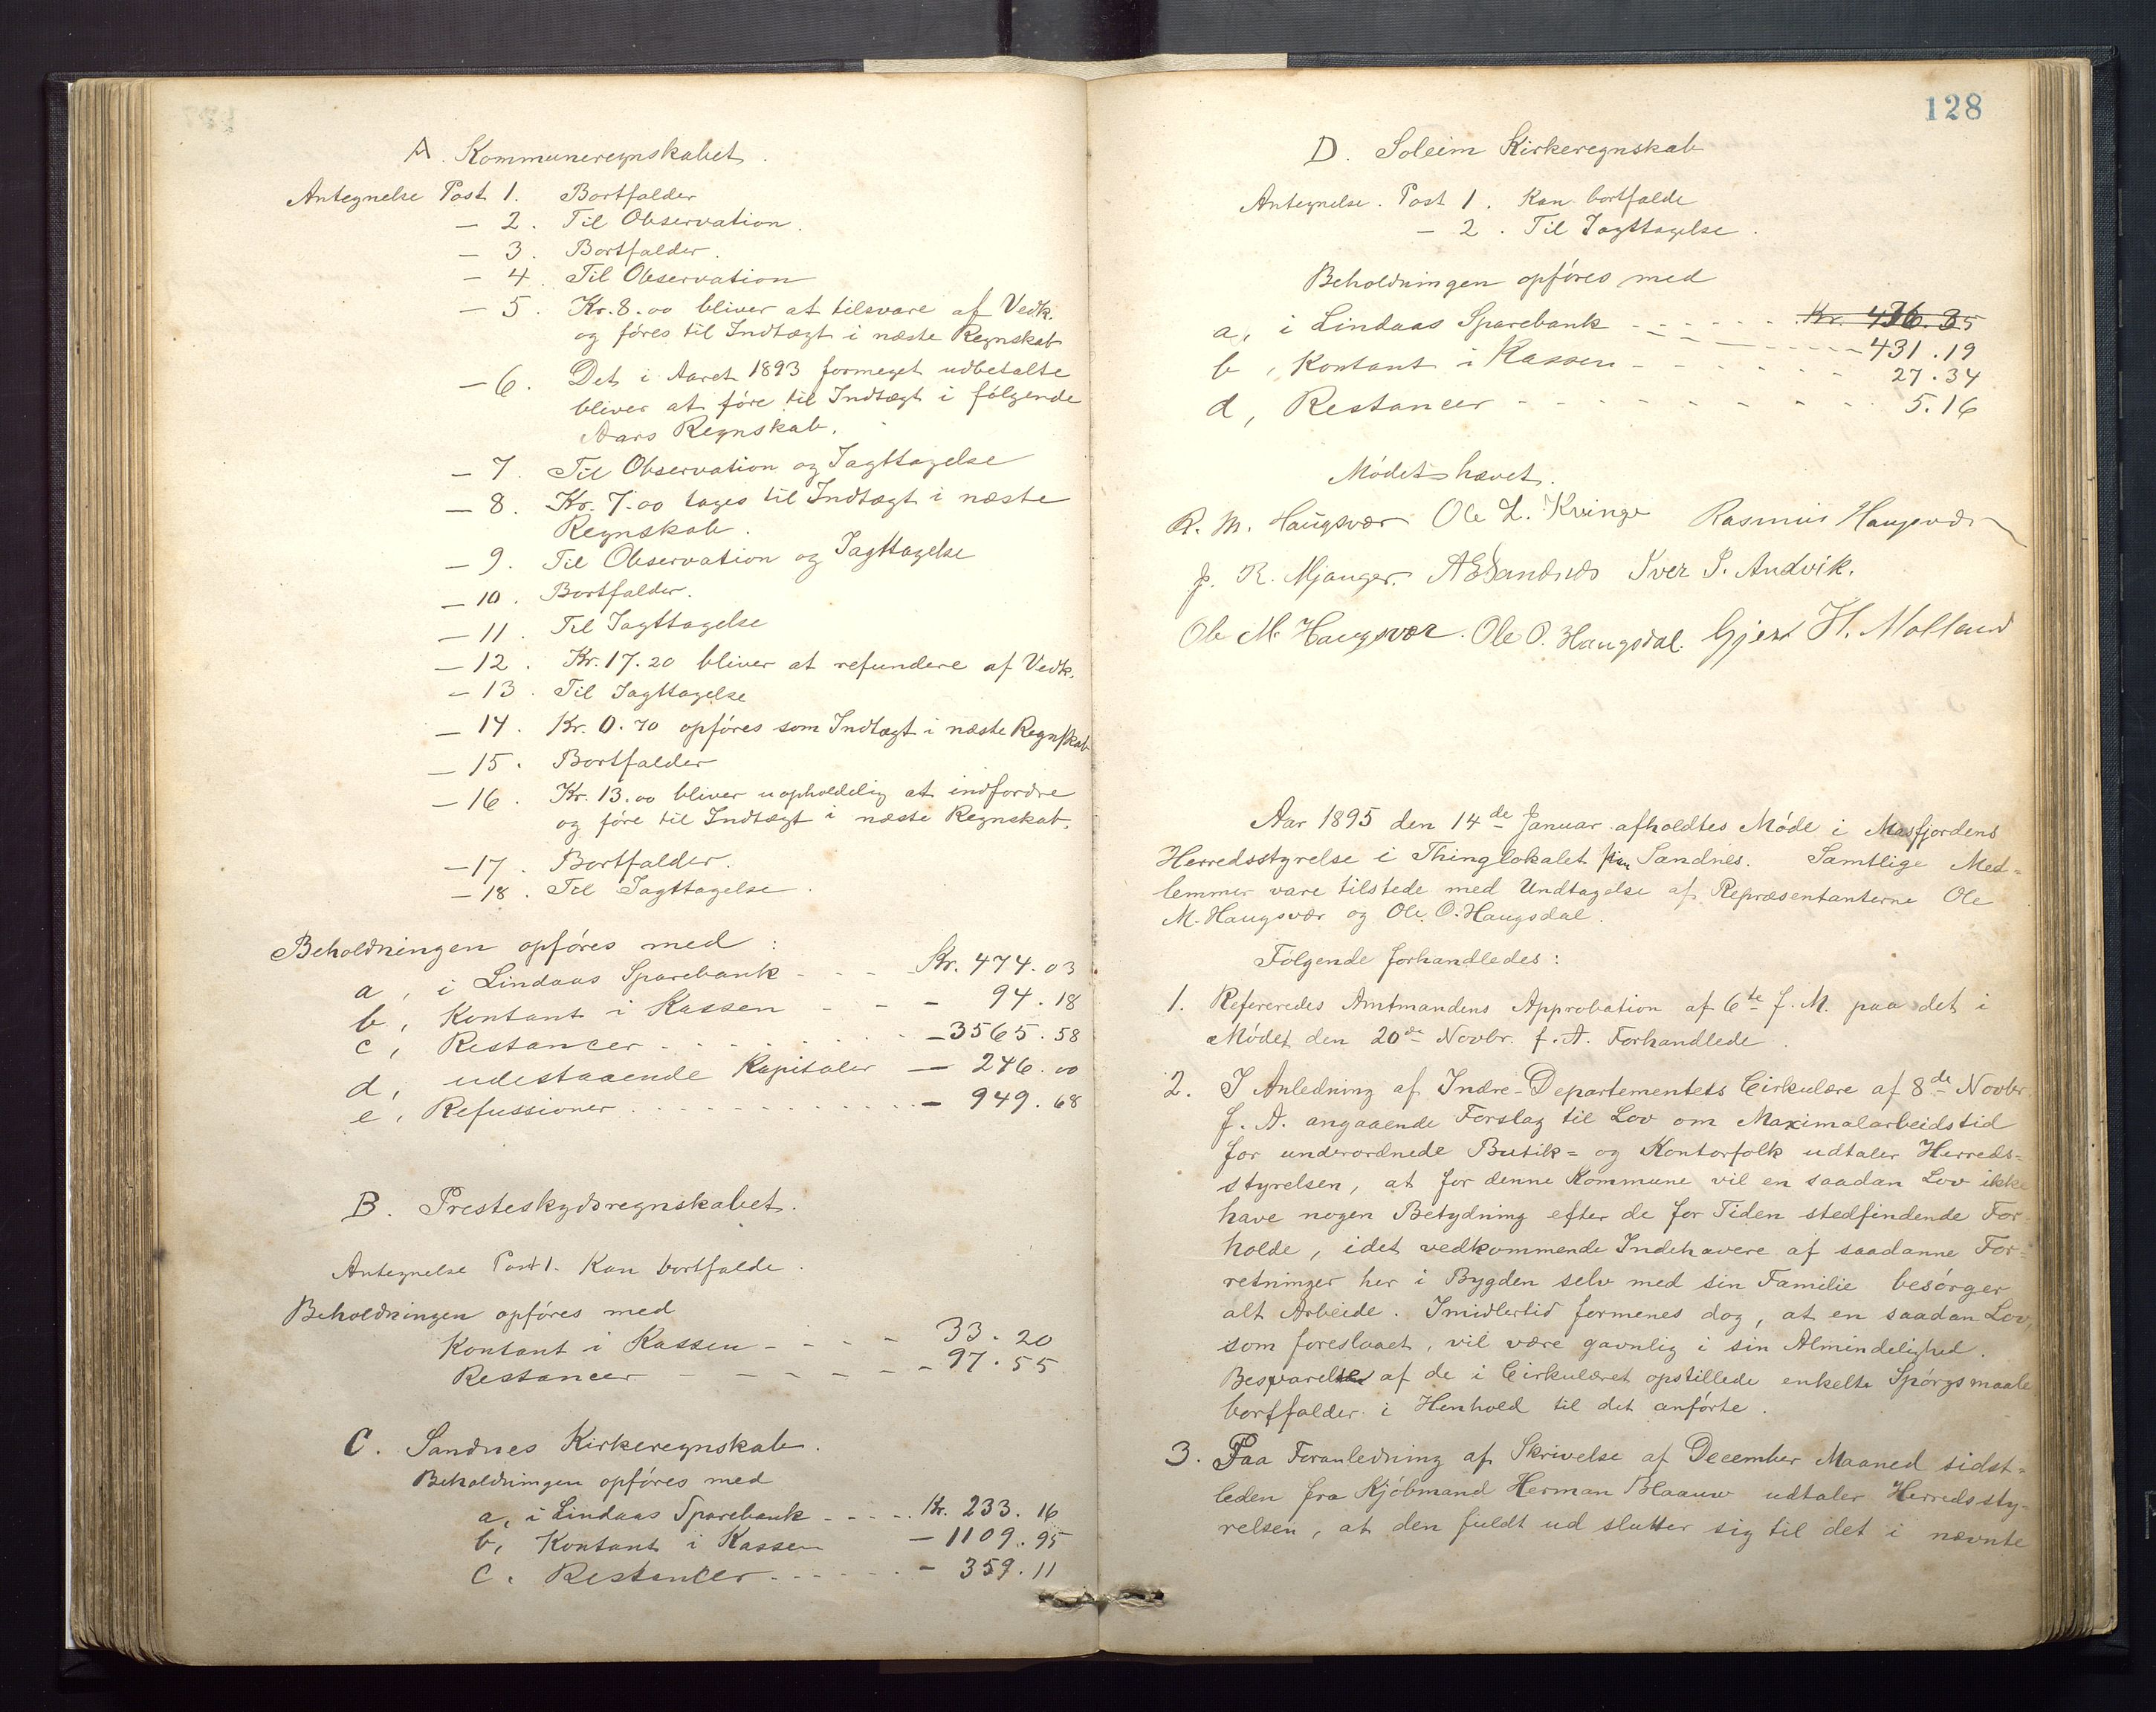 A. Kommuneregnskabet.
Antegnelse Post 1. Bortfalder
— 2. Til Observation.
— 3. Bortfalder.
— 4. Til Observation
— 5. Kr. 8.00 bliver at tilsvare af Vedk.
og føres til Indtægt i næste Regnskab
— 6. Det i Aaret 1893 formeget udbetalte
bliver at føre til Indtægt i følgende
Aars Regnskab.
— 7. Til Observation og Iagttagelse
— 8. Kr. 7.00 tages til Indtægt i næste
Regnskab.
— 9. Til Observation og Iagttagelse
— 10. Bortfalder.
— 11. Til Iagttagelse
— 12. Kr. 17.20 bliver at refundere af Vedk.
— 13. Til Iagttagelse
— 14. Kr. 0.70 opføres som Indtægt i næste Regnskab
— 15. Bortfalder
— 16. Kr. 13.00 bliver uopholdelig at indfordre
og føre til Indtægt i næste Regnskab.
— 17. Bortfalder.
— 18. Til Iagttagelse.
Beholdningen opføres med:
a, i Lindaas Sparebank - - - Kr. 474.03
b, Kontant i Kassen - - - 94.18
c, Restancer - - - — 3565.58
d, udestaaende Kapitaler — 246.00
e, Refussioner - - - — 949.68
B. Presteskydsregnskabet.
Antegnelse Post 1. Kan bortfalde.
Beholdningen opføres med
Kontant i Kassen - - - 33.20
Restancer - - - - 97.55
C. Sandnes Kirkeregnskab.
Beholdningen opføres med
a, i Lindaas Sparebank - - - Kr. 233.16
b, Kontant i Kassen — 1109.95
c. Restancer - - - - 359.11
128
D. Soleim Kirkeregnskab
Antegnelse. Post 1. Kan bortfalde
— 2. Til Iagttagelse.
Beholdningen opføres med
a, i Lindaas Sparebank - - - Kr. 436.35
- - - 431.19
b, Kontant i Kassen - - - 27.34
d, Restancer - - - 5.16
Mødet hævet.
R. M. Haugsvær Ole L. Kvinge Rasmus Haugsvær
J. R. Mjanger. A E Sandnes Iver S. Andvik.
Ole M. Haugsvær. Ole O. Haugsdal. Gjert H. Molland
Aar 1895 den 14de Januar afholdtes Møde i Masfjordens
Herredsstyrelse i Thinglokalet paa Sandnes. Samtlige Med-
lemmer vare tilstede med Undtagelse af Repræsentanterne Ole
M. Haugsvær og Ole O. Haugsdal.
Følgende forhandledes:
1. Refereredes Amtmandens Approbation af 6te f. M. paa det i
Mødet den 20de Novbr. f. A. Forhandlede.
2. I Anledning af Indre-Departementets Cirkulære af 8de Novbr
f. A. angaaende Forslag til Lov om Maximalarbeidstid
for underordnede Butik- og Kontorfolk udtaler Herreds-
styrelsen, at for denne Kommune vil en saadan Lov ikke
have nogen Betydning efter de for Tiden stedfindende For-
holde, idet vedkommende Indehavere af saadanne For-
retninger her i Bygden selv med sin Familie besørger
alt Arbeide. Imidlertid formenes dog, at en saadan Lov,
som foreslaaet, vil være gavnlig i sin Almindelighed.
Besvarelse af de i Cirkulæret opstillede enkelte Spørgsmaale
bortfalder i Henhold til det anførte.
3. Paa Foranledning af Skrivelse af December Maaned sidst-
leden fra Kjøbmand Herman Blaauw udtaler Herredssty-
relsen, at den fuldt ud slutter sig til det i nævnte